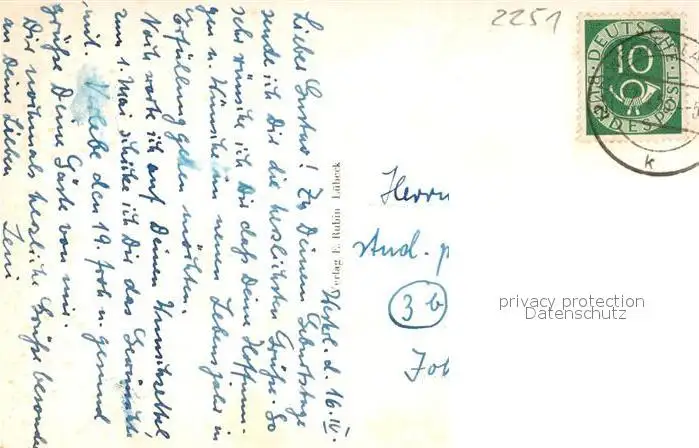 2251
DEUTSCHE BUNDESPOST
10
k
Westerl. d. 16. IV.
Lieber Gustav! Zu Deinem Geburtstage
sende ich Dir die herzlichsten Grüße. So
sehr wünsche ich Dir daß Deine Hoffnun-
gen u. Wünsche im neuen Lebensjahr in
Erfüllung gehen möchten.
Noch warte ich auf Deinen Wunschzettel,
zum 1. Mai schicke ich Dir das
mit. Verlebe den 19. froh u. gesund
grüße Deine Gäste von mir.
Dir nochmals herzliche Grüße besonders
an Deine Lieben Leni
Verlag E. Rubin Lübeck
Herrn
stud. p
3b
Joh
privacy protection
Datenschutz